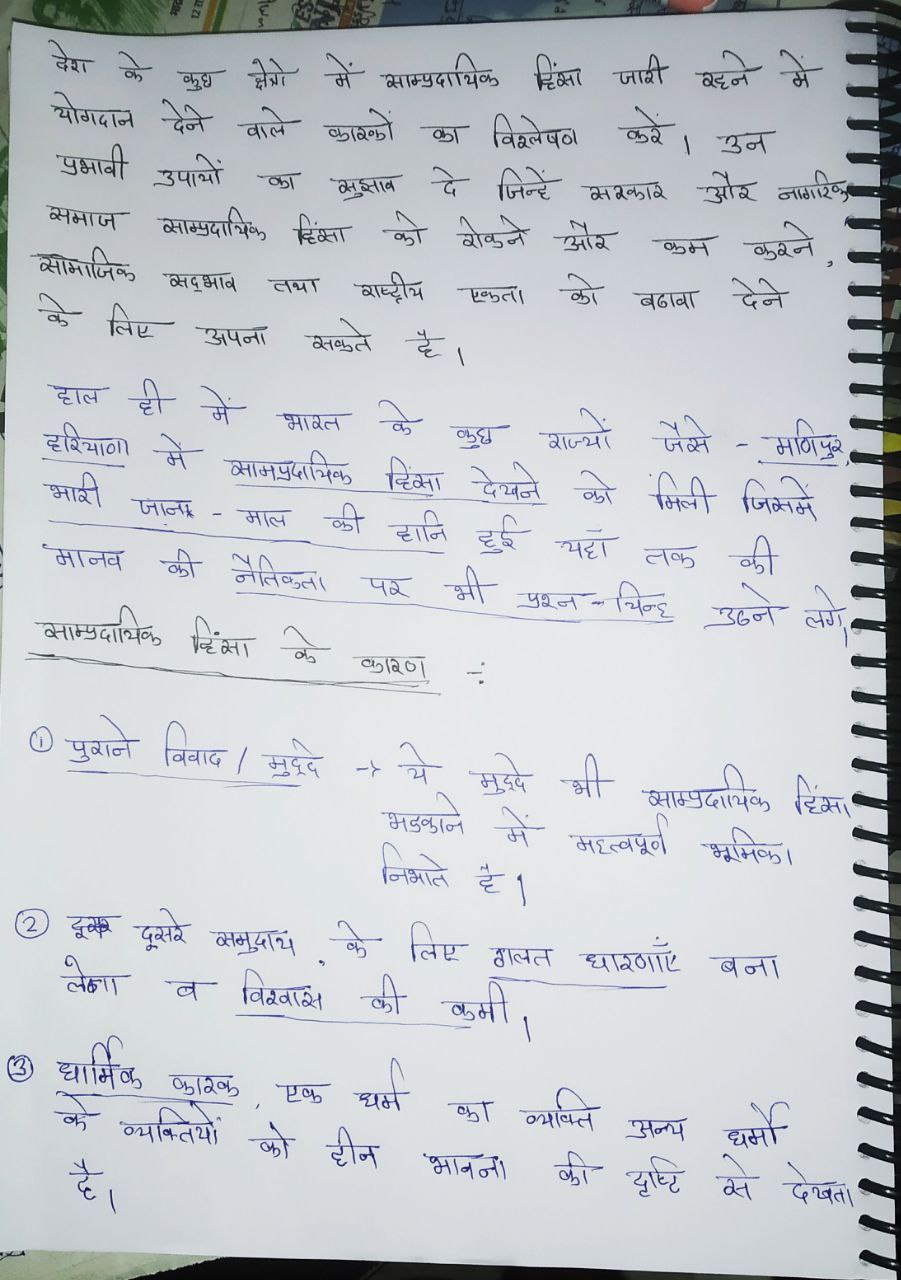 देश के कुछ क्षेत्रो में साम्प्रदायिक हिंसा जारी रहने में
योगदान देने वाले कारकों का विश्लेषण करें। उन
प्रभावी उपायों का सुझाव दे जिन्हें सरकार और नागरिक
समाज साम्प्रदायिक हिंसा को रोकने और कम करने,
सामाजिक सद्भाव तथा राष्ट्रीय एकता को बढावा देने
के लिए अपना सकते है।
हाल ही में भारत के कुछ राज्यों जैसे - मणिपुर,
हरियाणा में सामप्रदायिक हिंसा देखने को मिली जिसमें
भारी जान - माल की हानि हुई यहाँ तक की
मानव की नैतिकता पर भी प्रश्न - चिन्ह उठने लगे।
साम्प्रदायिक हिंसा के कारण ÷
① पुराने विवाद / मुद्दे → ये मुद्दे भी साम्प्रदायिक हिंसा
भडकाने में महत्वपूर्ण भूमिका
निभाते है।
② दूसरे समुदाय के लिए गलत धारणाएँ बना
लेना व विश्वास की कमी।
③ धार्मिक कारक, एक धर्म का व्यक्ति अन्य धर्मो
के व्यक्तियों को हीन भावना की दृष्टि से देखता
है।